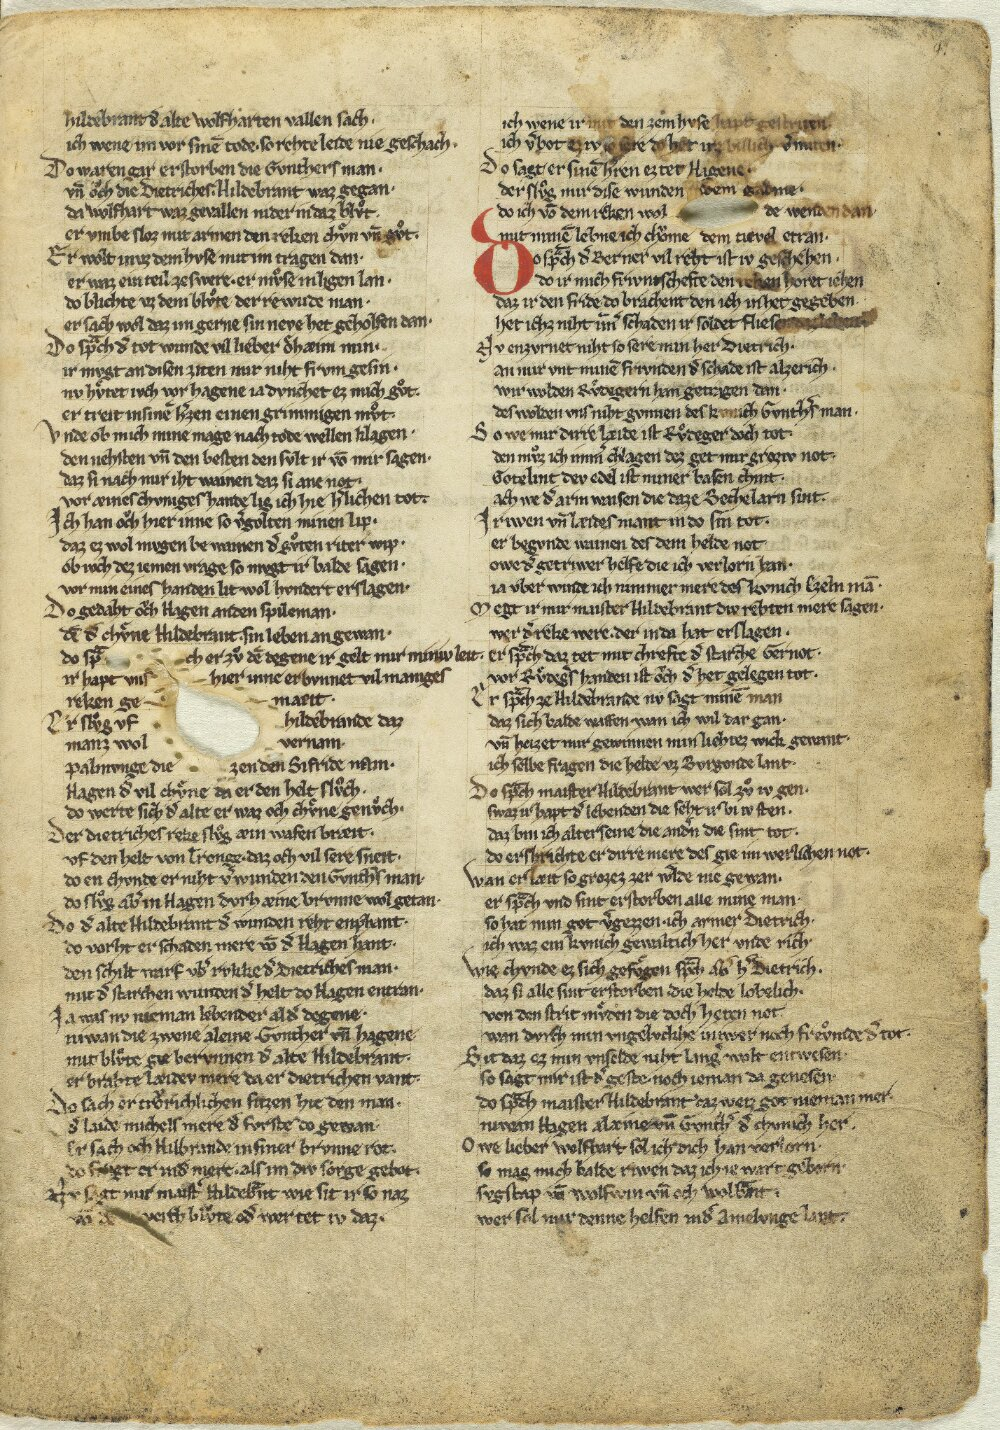 hildebrant d͛ alte wolfharten vallen sach·
ich wene im vor sinē tode. so rehte leide nie geschach·
Do waren gar erstorben die Gvnthers man·
vn̄ oͮch die Dietriches. Hildebrant waz gegan·
da wolfhart waz gevallen nider in daz blvͦt·
er vmbe sloz mit armen den reken chvͤn vn̄ gvͦt·
Er wolt in vz dem hvse mit im tragen dan·
er waz ein teil ze swere. er mvͤse in ligen lan·
do blichte vz dem blvͦte der re wunde man·
er sach wol daz im gerne sin neve het geholfen dan·
Do sp̄ch d͛ tot wunde vil lieber ohæim min·
ir mvgt an disen ziten mir niht frvm gesin·
nv hvͤtet ivch vor hagene ia dvnchet ez mich gvͦt·
er treit in sinē h͛zen einen grimmigen mvͦt·
Vnde ob mich mine mage nach tode wellen klagen·
den nehsten vn̄ den besten den svlt ir vō mir sagen·
daz si nach mir iht wainen daz si ane not·
vor æines chvniges hande lig ich hie h͛lichen tot·
Ich han oͮch hier inne so v͛golten minen lip·
daz ez wol mvgen be wainen d͛ gvͦten riter wip·
ob ivch dez iemen vrage so mvgt ir balde sagen·
vor min eines handen lit wol hvndert erslagen·
Do gedaht oͮch Hagen an den spileman·
dē d͛ chvͤne Hildebrant. sin leben an gewan·
do sp̄ ch er zvͦ dē degene ir gelt mir miniv leit·
ir hapt vns hier inne erbvnnet vil maniges
reken ge maeit·
Er slvͦg vf hildebrande daz
manz wol vernam·
palmvnge die zen den Sifride nam·
Hagen d͛ vil chvͤne da er den helt slvͦch·
do werte sich d͛ alte er waz och chvͤne genvͦch·
Der dietriches reke slvͦg æin wafen bræit·
vf den helt von Tronge. daz och vil sere sneit·
do en chvnde er niht v͛wunden den Gvnth͛s man·
do slvͦg ab͛ in Hagen dvrh æine brvnne wol getan·
Do d͛ alte Hildebrant d͛ wunden reht enphant·
do vorht er schaden mere vō d͛ Hagen hant·
den schilt warf vb͛ rvkke d͛ Dietriches man·
mit d͛ starchen wunden d͛ helt do Hagen entran·
Ia was nv nieman lebender al d͛ degene·
niwan die zwene aleine. Gvnther vn̄ hagene
mit blvͦte gie bervnnen d͛ alte Hildebrant·
er brahte læidev mere da er dietrichen vant·
Do sach er trvͦrichlichen sitzen hie den man·
d͛ laide michels mere d͛ fvrste do gewan·
Er sach och Hilbrande in siner brvnne rot·
do fragt er in d͛ mere. als im div sorge gebot·
Nv sagt mir maist͛ Hildebrāt wie sit ir so naz
verch blvͦte od͛ wer tet iv daz·
ich wene ir mit den
ich v͛bot
Do sagt er sinē h͛ren ez tet Hagene·
der slvͦg mir dise wunden dem gademe·
do ich vō dem reken wol de wenden dan
mit minē lebne ich chvͤme dem tievel etran·
Do sp̄ch d͛ Berner vil reht ist iv geschehen·
do ir mich frivntschefte den reken horet iehen
daz ir den fride do brachent den ich in het gegeben
het ichz niht im̄ schaden ir soldet fliesen
Nv enzvrnet niht so sere min her Dietrich·
an mir vnt minē frivnden d͛ schade ist al ze rich·
wir wolden Rvͦdegern han getragen dan·
des wolden vns niht gvnnen des kvnich Gvnth͛s man·
So we mir dirre læide ist Rvͦdeger doch tot·
den mvͦz ich imm͛ chlagen dez get mir groziv not·
Gotelint dev edel ist miner basen chint·
ach we d͛ arm weisen die da ze Bechelarn sint·
Iriwen vn̄ læides mant in do sin tot·
er begvnde wainen des dem helde not
owe d͛ getriwer helfe die ich verlorn han·
ia vber winde ich nimmer mere des kvnich Ezeln mā·
Megt ir mir maister Hildebrant die rehten mere sagen·
wer d͛ reke were. der in da hat erslagen·
er sp̄ch daz tet mit chrefte d͛ starche Gernot·
vor Rvͦdeg͛s handen ist oͮch d͛ het gelegen tot·
Er sp̄ch ze Hildebrande nv sagt minē man
daz sich balde waffen wan ich wil dar gan·
vn̄ heizet mir gewinnen min liehtez wich gewant·
ich selbe fragen die helde vz Bvrgonde lant·
Do sp̄ch maister Hildebrant wer sol zvͦ iv gen·
swaz ir hapt d͛ lebenden die seht ir bi iv sten·
daz bin ich alters eine die and͛n die sint tot·
do ershrichte er dirre mere des gie im werlichen not·
Wan er læit so grozez zer wlde nie gewan·
er sp̄ch vnd sint erstorben alle mine man·
so hat min got v͛gezzen. ich armer Dietrich·
ich waz ein kvnich gewaltich her vnde rich·
Wie chvnde ez sich gefvͤgen sp̄ch ab͛ h͛ Dietrich·
daz si alle sint erstorben. die helde lobelich·
von den strit mvͤden die doch heten not
wan dvrch min vngelvchhe in wer noch frevͤmde d͛ tot·
Sit daz ez min vnselde niht lang͛ wolt entwesen·
so sagt mir ist d͛ geste. noch ieman da genesen·
do sp̄ch maister Hildebrant daz weiz got nieman mer·
niwan Hagen alæine vn̄ Gvnth͛ d͛ chvnich her·
Owe lieber wolfhart sol ich dich han verlorn·
so mag mich balde riwen daz ich ie wart geborn·
sygstap vn̄ wolfwin vn̄ och wolbrāt·
wer sol mir denne helfen in d͛ Amelvnge lant·